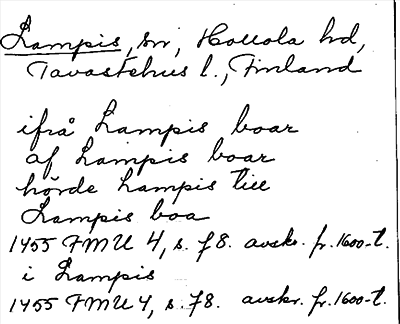 Lampis, sn, Hollola hd,
Tavastehus l., Finland
ifrå Lampis boar
af Lampis boar
hörde Lampis till
Lampis boa
1455 FMU 4, s. 78. avskr. fr. 1600-t.
i Lampis
1455 FMU 4, s. 78. avskr. fr. 1600-t.